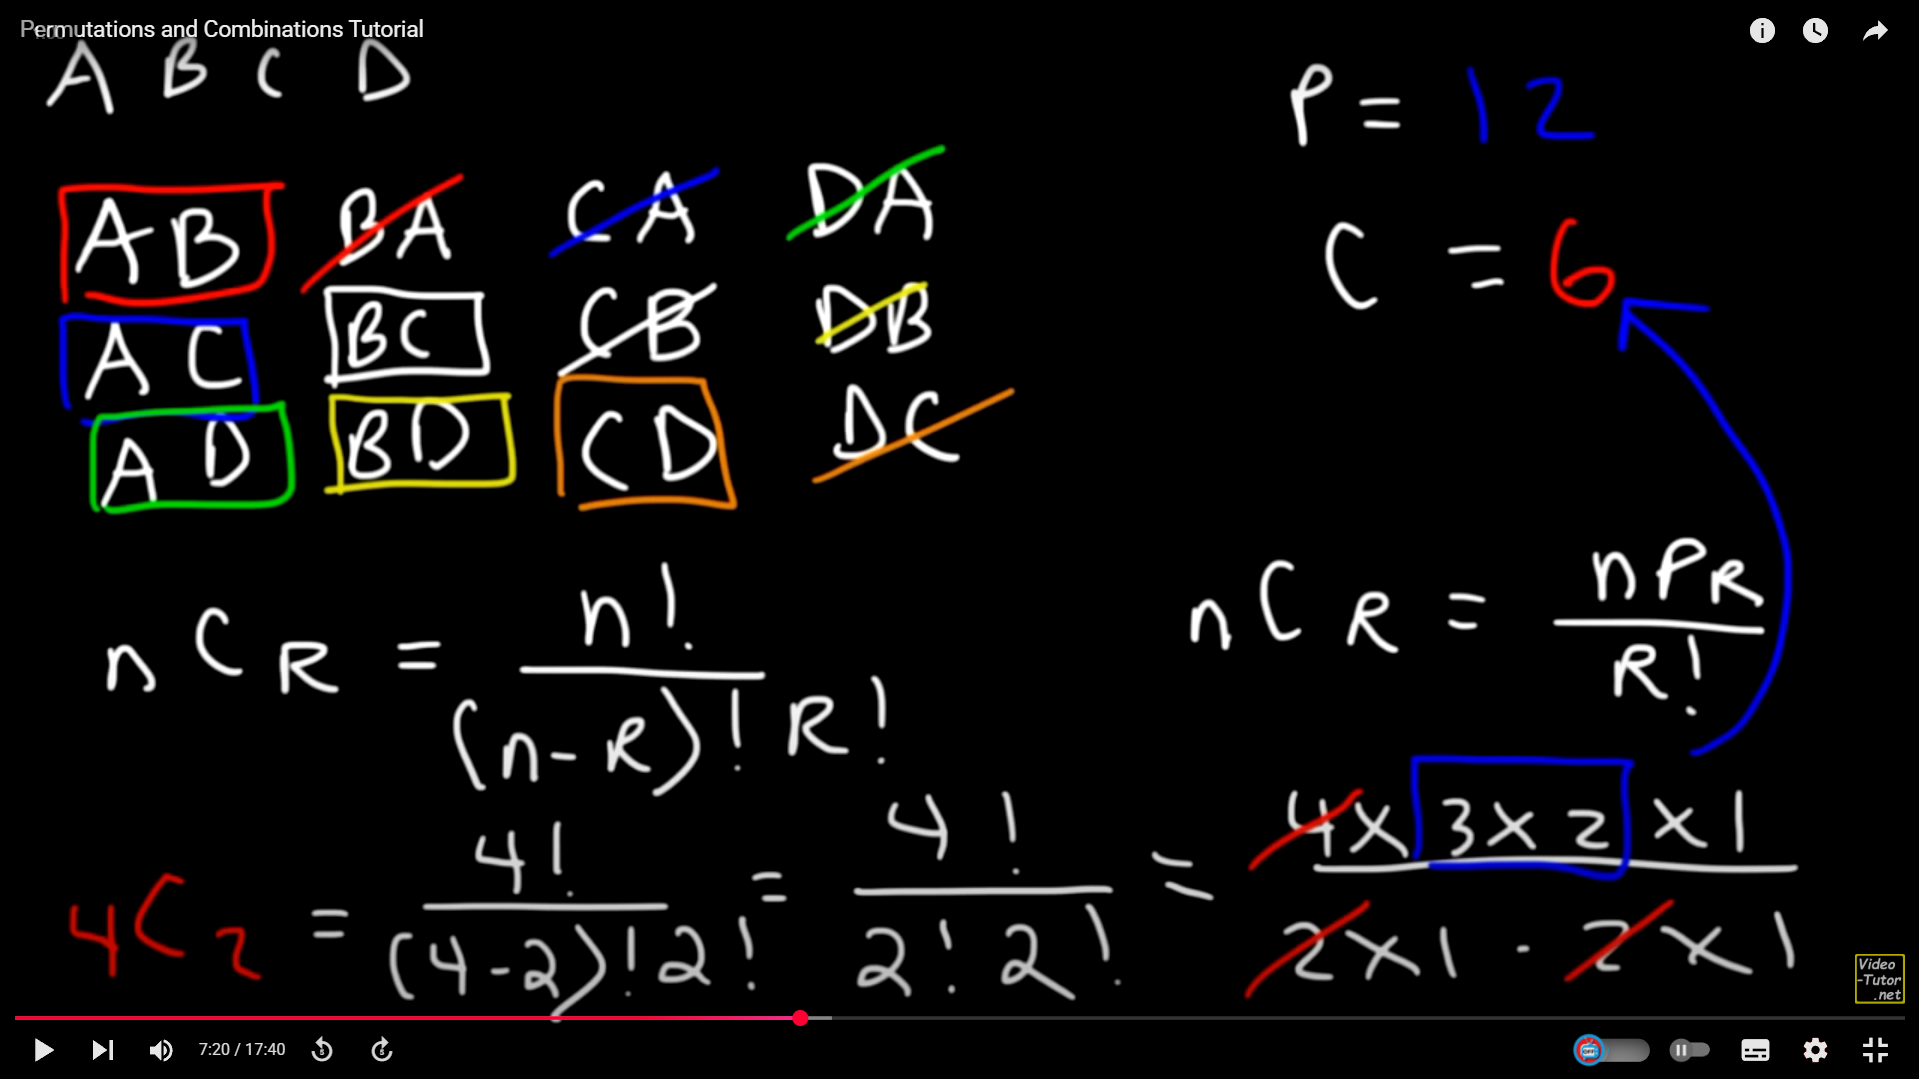 Permutations and Combinations Tutorial
A B C D
P = 12
AB BA CA DA
C = 6
AC BC CB DB
AD BD CD DC
nCR = n! / (n-R)! R!
nCR = nPR / R!
4C2 = 4! / (4-2)! 2! = 4! / 2! 2! = 4x3x2x1 / 2x1 · 2x1
Video
-Tutor
.net
7:20 / 17:40
5
5
OFF